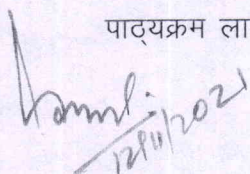 पाठ्यक्रम ला
12/11/2021